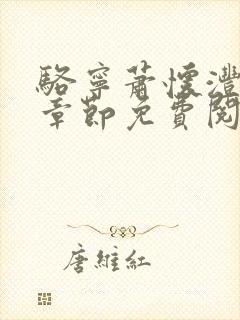 駱寧蕭懷灃
章節免費閱
唐維紅